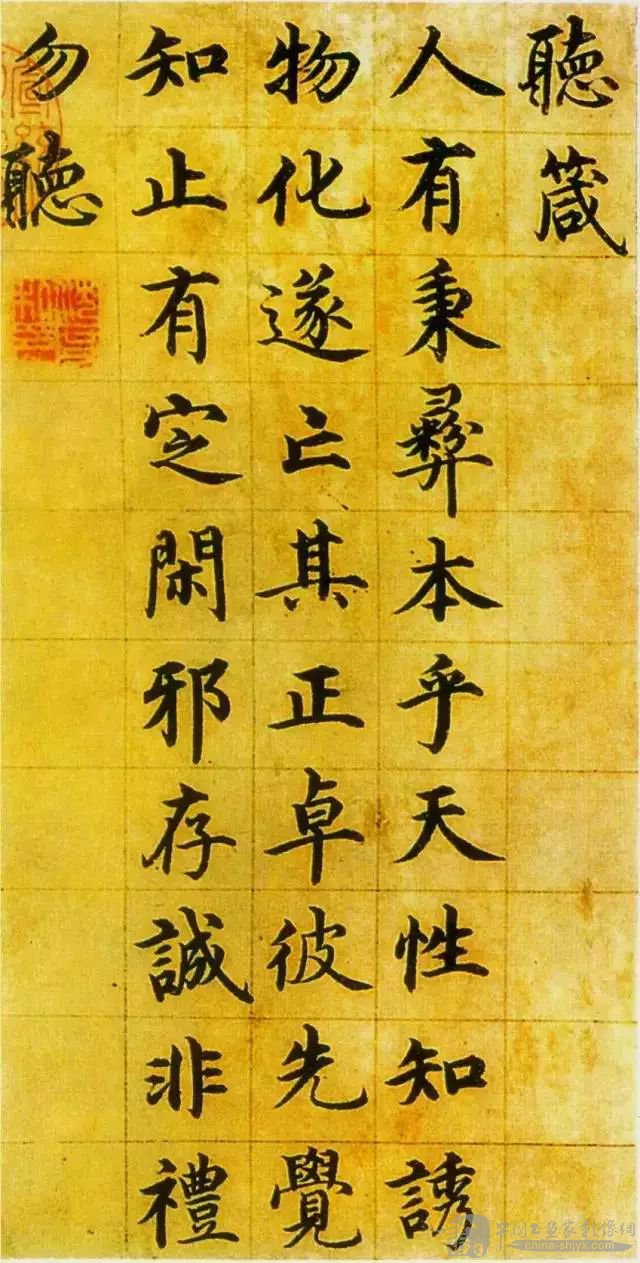 聽箴
人有秉彝本乎天性知誘
物化遂亡其正卓彼先覺
知止有定閑邪存誠非禮
勿聽
中國書畫家影像網
china-shjyx.com